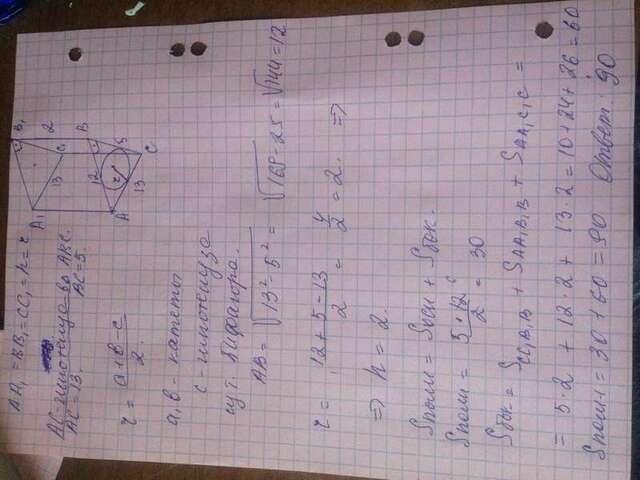 AA₁ = BB₁ = CC₁ = h = r
AC - гипотенуза ABC.
AC = 13. BC = 5.
r = (a+b-c)/2
a, b - катеты
c - гипотенуза
Пифагора.
AB = √(13² - 5²) = √(169 - 25) = √144 = 12
r = (12 + 5 - 13)/2 = 4/2 = 2. ⇒
⇒ h = 2.
Sполн = Sосн + Sбок.
Sполн = (5 · 12)/2 = 30
Sбок = SCC₁B₁B + SAA₁B₁B + SAA₁C₁C =
= 5 · 2 + 12 · 2 + 13 · 2 = 10 + 24 + 26 = 60
Sполн = 30 + 60 = 90 Ответ: 90
A₁ B₁ 2 B
C₁ 13 12 r 5
A 13 C